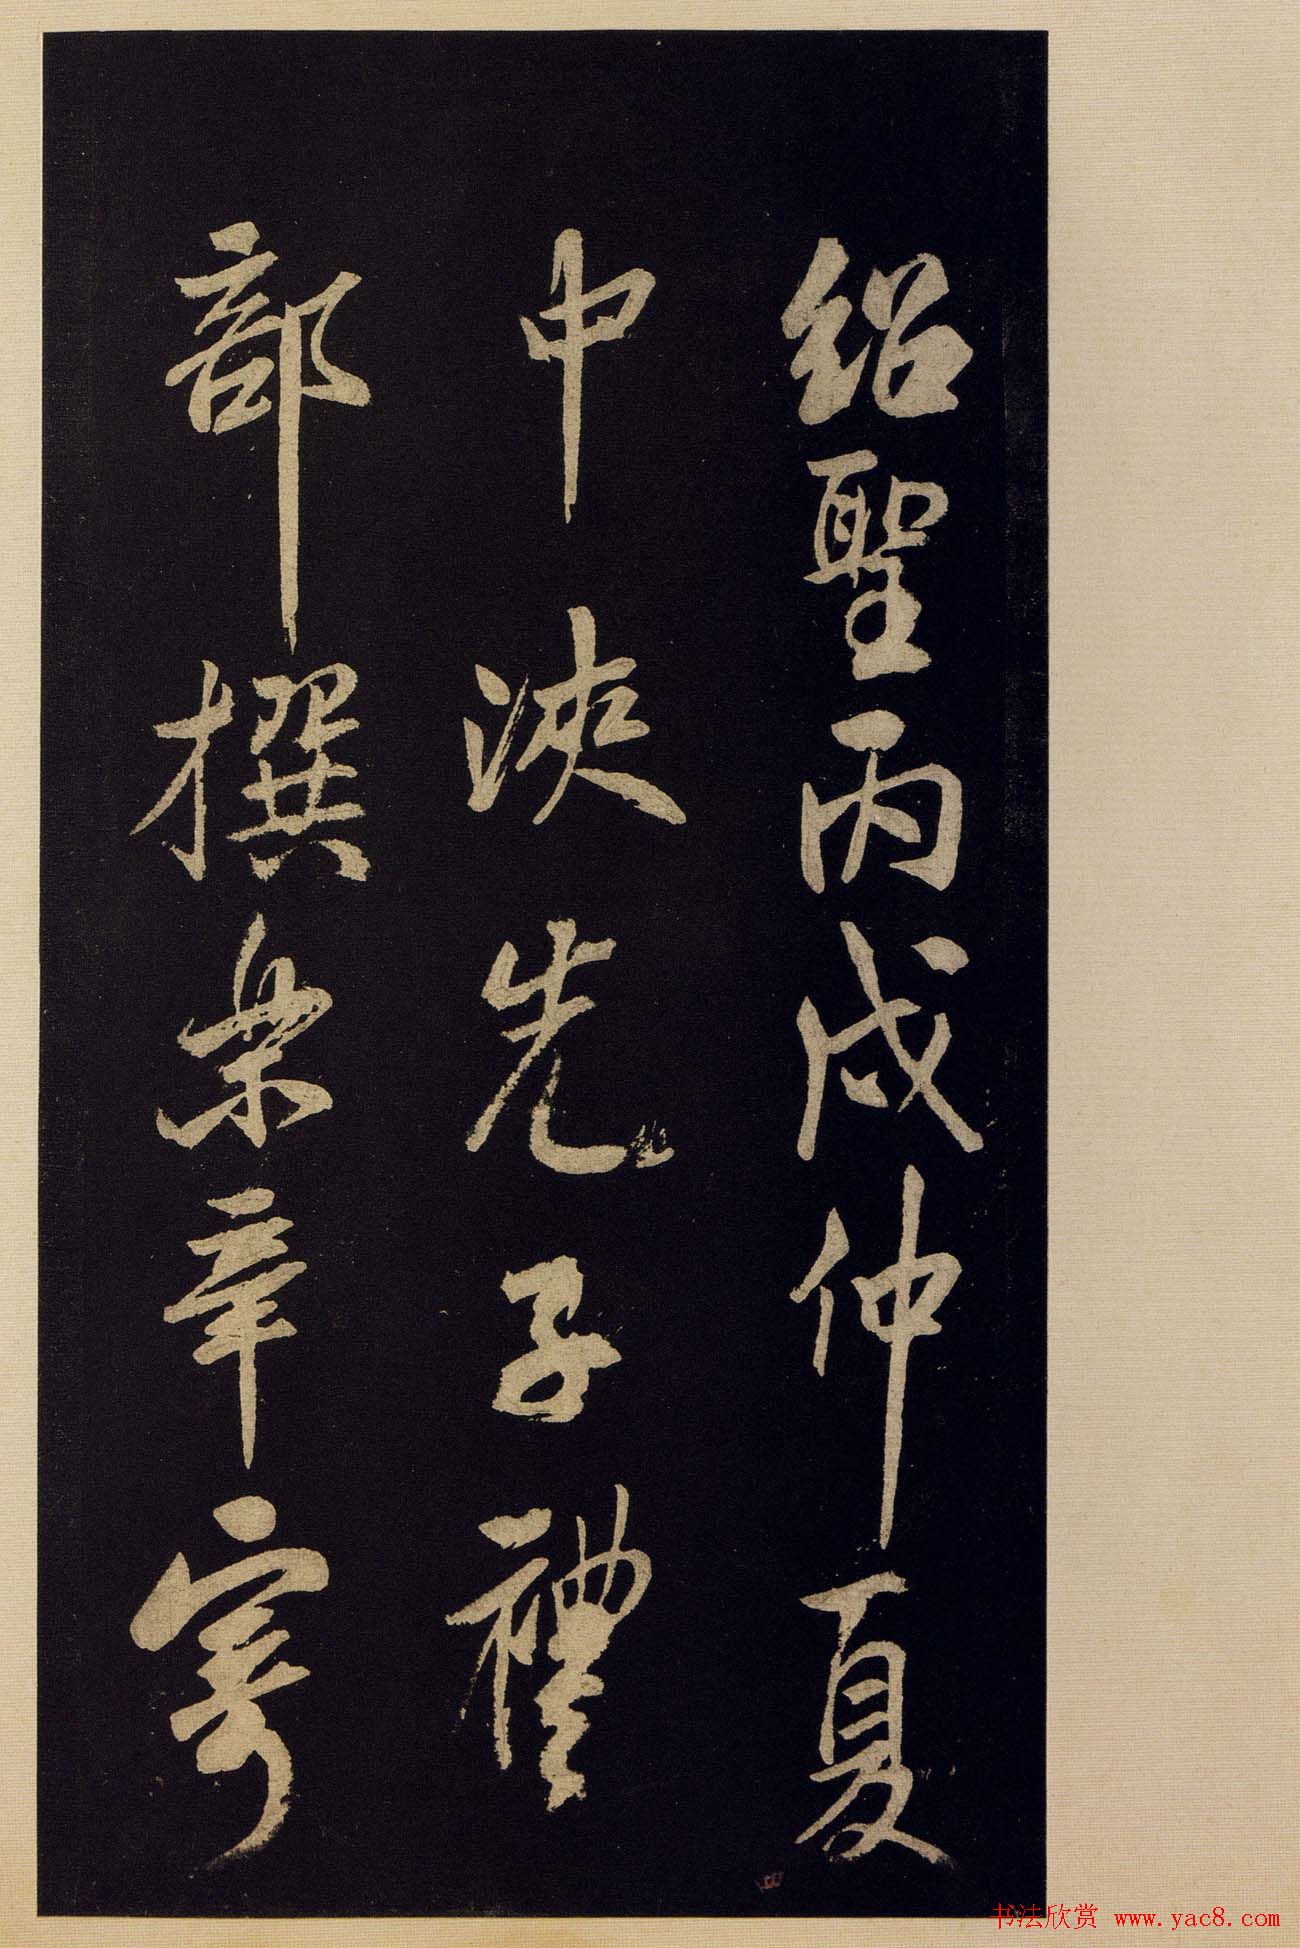 紹聖丙戌仲夏
中浹先子禮
部撰樂章寄
书法欣赏 www.yac8.com